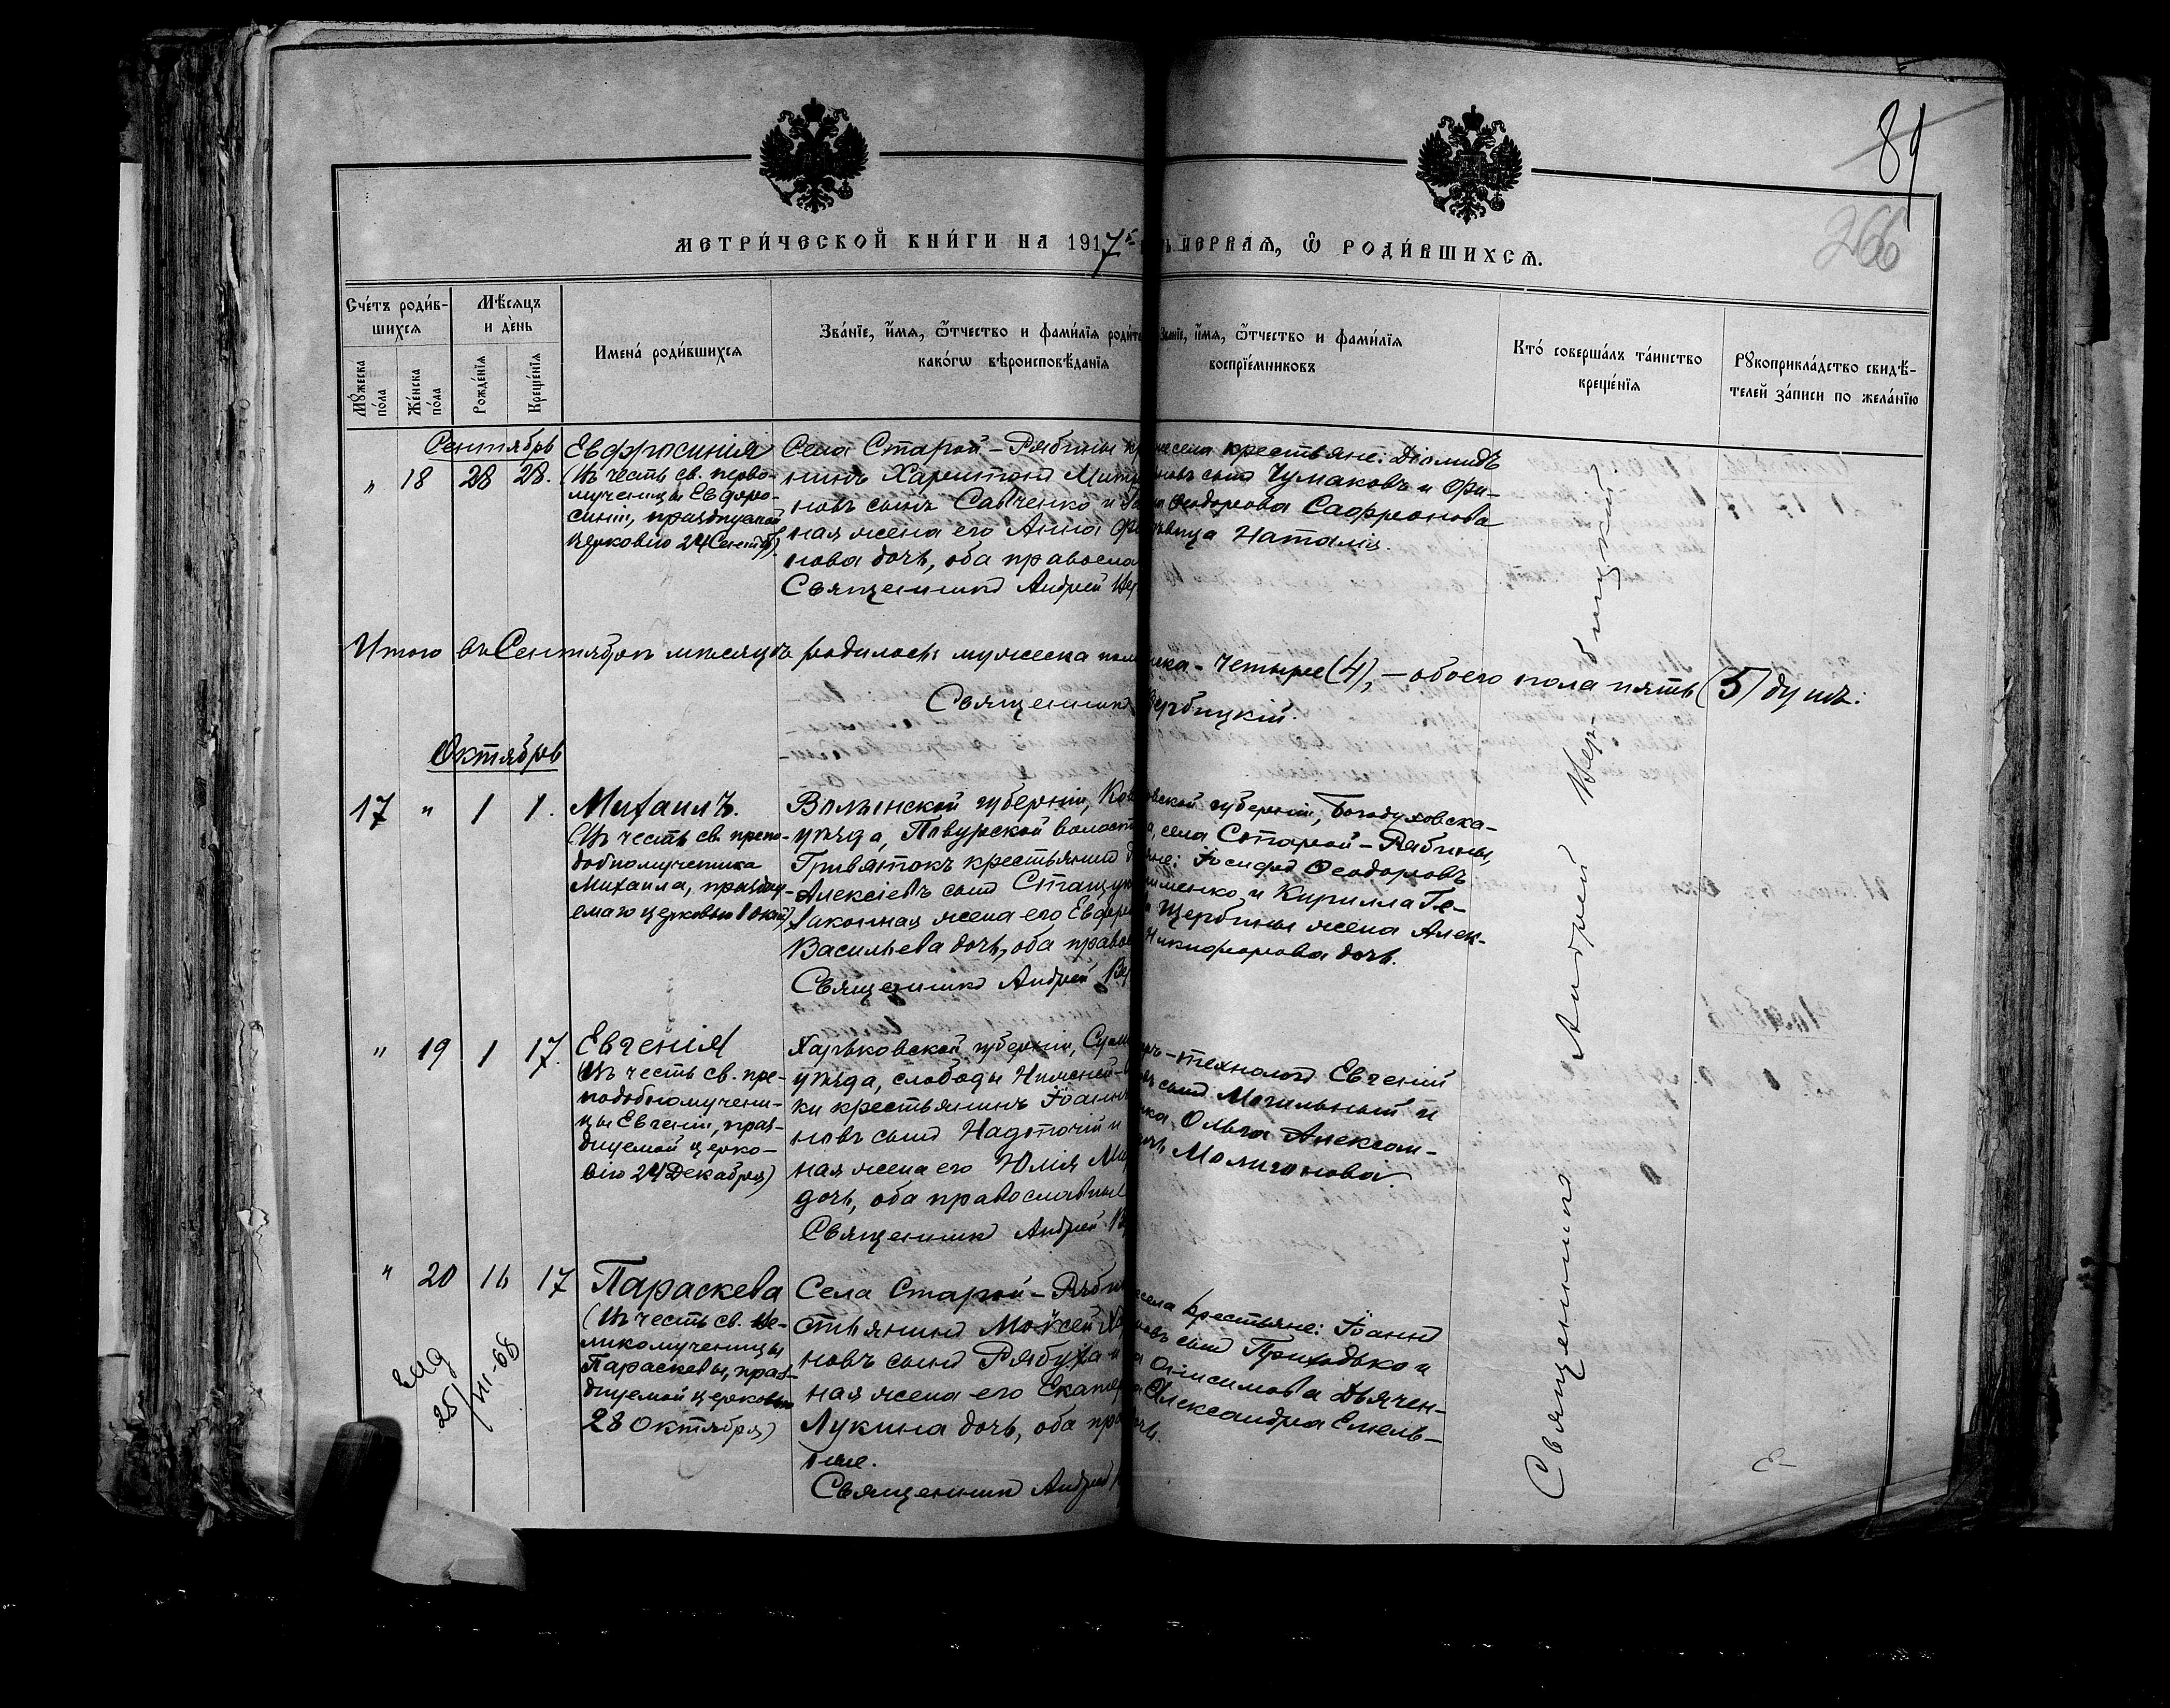 89
266
МЕТРИ́ЧЕСКОЙ КНИ́ГИ НА 1917
ПЕРВАЯ, Ѿ РОДИ́ВШИХСЯ.
Сче́тъ роди́в-
шихся
Му́жеска по́ла
Же́нска по́ла
Мѣсяцъ
и де́нь
Рожде́нїя
Креще́нїя
Имена̀ роди́вшихся
Зва́нїе, и́мя, ѻ́тчество и фами́лїя роди́те
како́гѡ вѣроисповѣ́данїя
Зва́нїе, и́мя, ѻ́тчество и фами́лїя
воспрїе́мниковъ
Кто́ соверша́лъ та́инство
креще́нїя
Рꙋкоприкла́дство свидѣ́-
телей за́писи по жела́нїю
Сентябрь
" 18 28 28.
Евфросинія
(Въ честь св. перво-
мученицы Евфро-
синіи, празднуемой
церковію 24 Сентяб)
Села Старой-Рябины
нинъ Харитонъ Митр
новъ сынъ Савченко и
ная жена его Анна
нова дочь, оба правосла
Священникъ Андрей Вер
села крестьяне: Діомидъ
новъ сынъ Чумаковъ и
Ѳеодорова Сафронова
дѣвица Наталія.
Итого въ Сентябрѣ мѣсяцѣ родилось: мужеска пол
ска - четыре (4), - обоего пола пять (5) душъ.
Священникъ
Вербицкій.
Октябрь
17 " 1 1.
Михаилъ.
(Въ честь св. препо-
добномученика
Михаила, праздну-
емаго церковью 1 окт)
Волынской губерніи, Ков
уѣзда, Повурской волост
Гривятокъ крестьянинъ
Алексіевъ сынъ
законная жена его Евфро
Васильева дочь, оба право
Священникъ Андрей Вер
вской губерніи, Богодуховска-
а, села Старой-Рябины,
яне: Іосифъ Ѳеодоровъ
именко и Кирилла Ге-
Щербины жена Алек-
Никифорова дочь.
" 19 1 17.
Евгенія
(Въ честь св. пре-
подобномучени-
цы Евгеніи, праз-
днуемой церко-
вію 24 Декабря)
Харьковской губерніи, Сум
уѣзда, слободы Нижней-
ки крестьянинъ Іоанн
новъ сынъ Надточій и
ная жена его Юлія
дочь, оба православные
Священникъ Андрей Ве
ръ-технологъ Евгеній
въ сынъ Могильный и
Ольга Алексан-
Молчанова
" 20 16 17
Параскева
(Въ честь св. Ве-
ликомученицы
Параскевы, праз-
днуемой церковью
28 Октября)
Села Старой-Ряби
стьянинъ Моисей
новъ сынъ Рябуха и
ная жена его Екатер
Лукина дочь, оба пра
ные.
Священникъ Андрей
села крестьяне: Іоаннъ
новъ сынъ Приходько и
Онисимова Дьячен-
Александра Емель-
дочь.
Священникъ Андрей Вербицкій
25/III-68